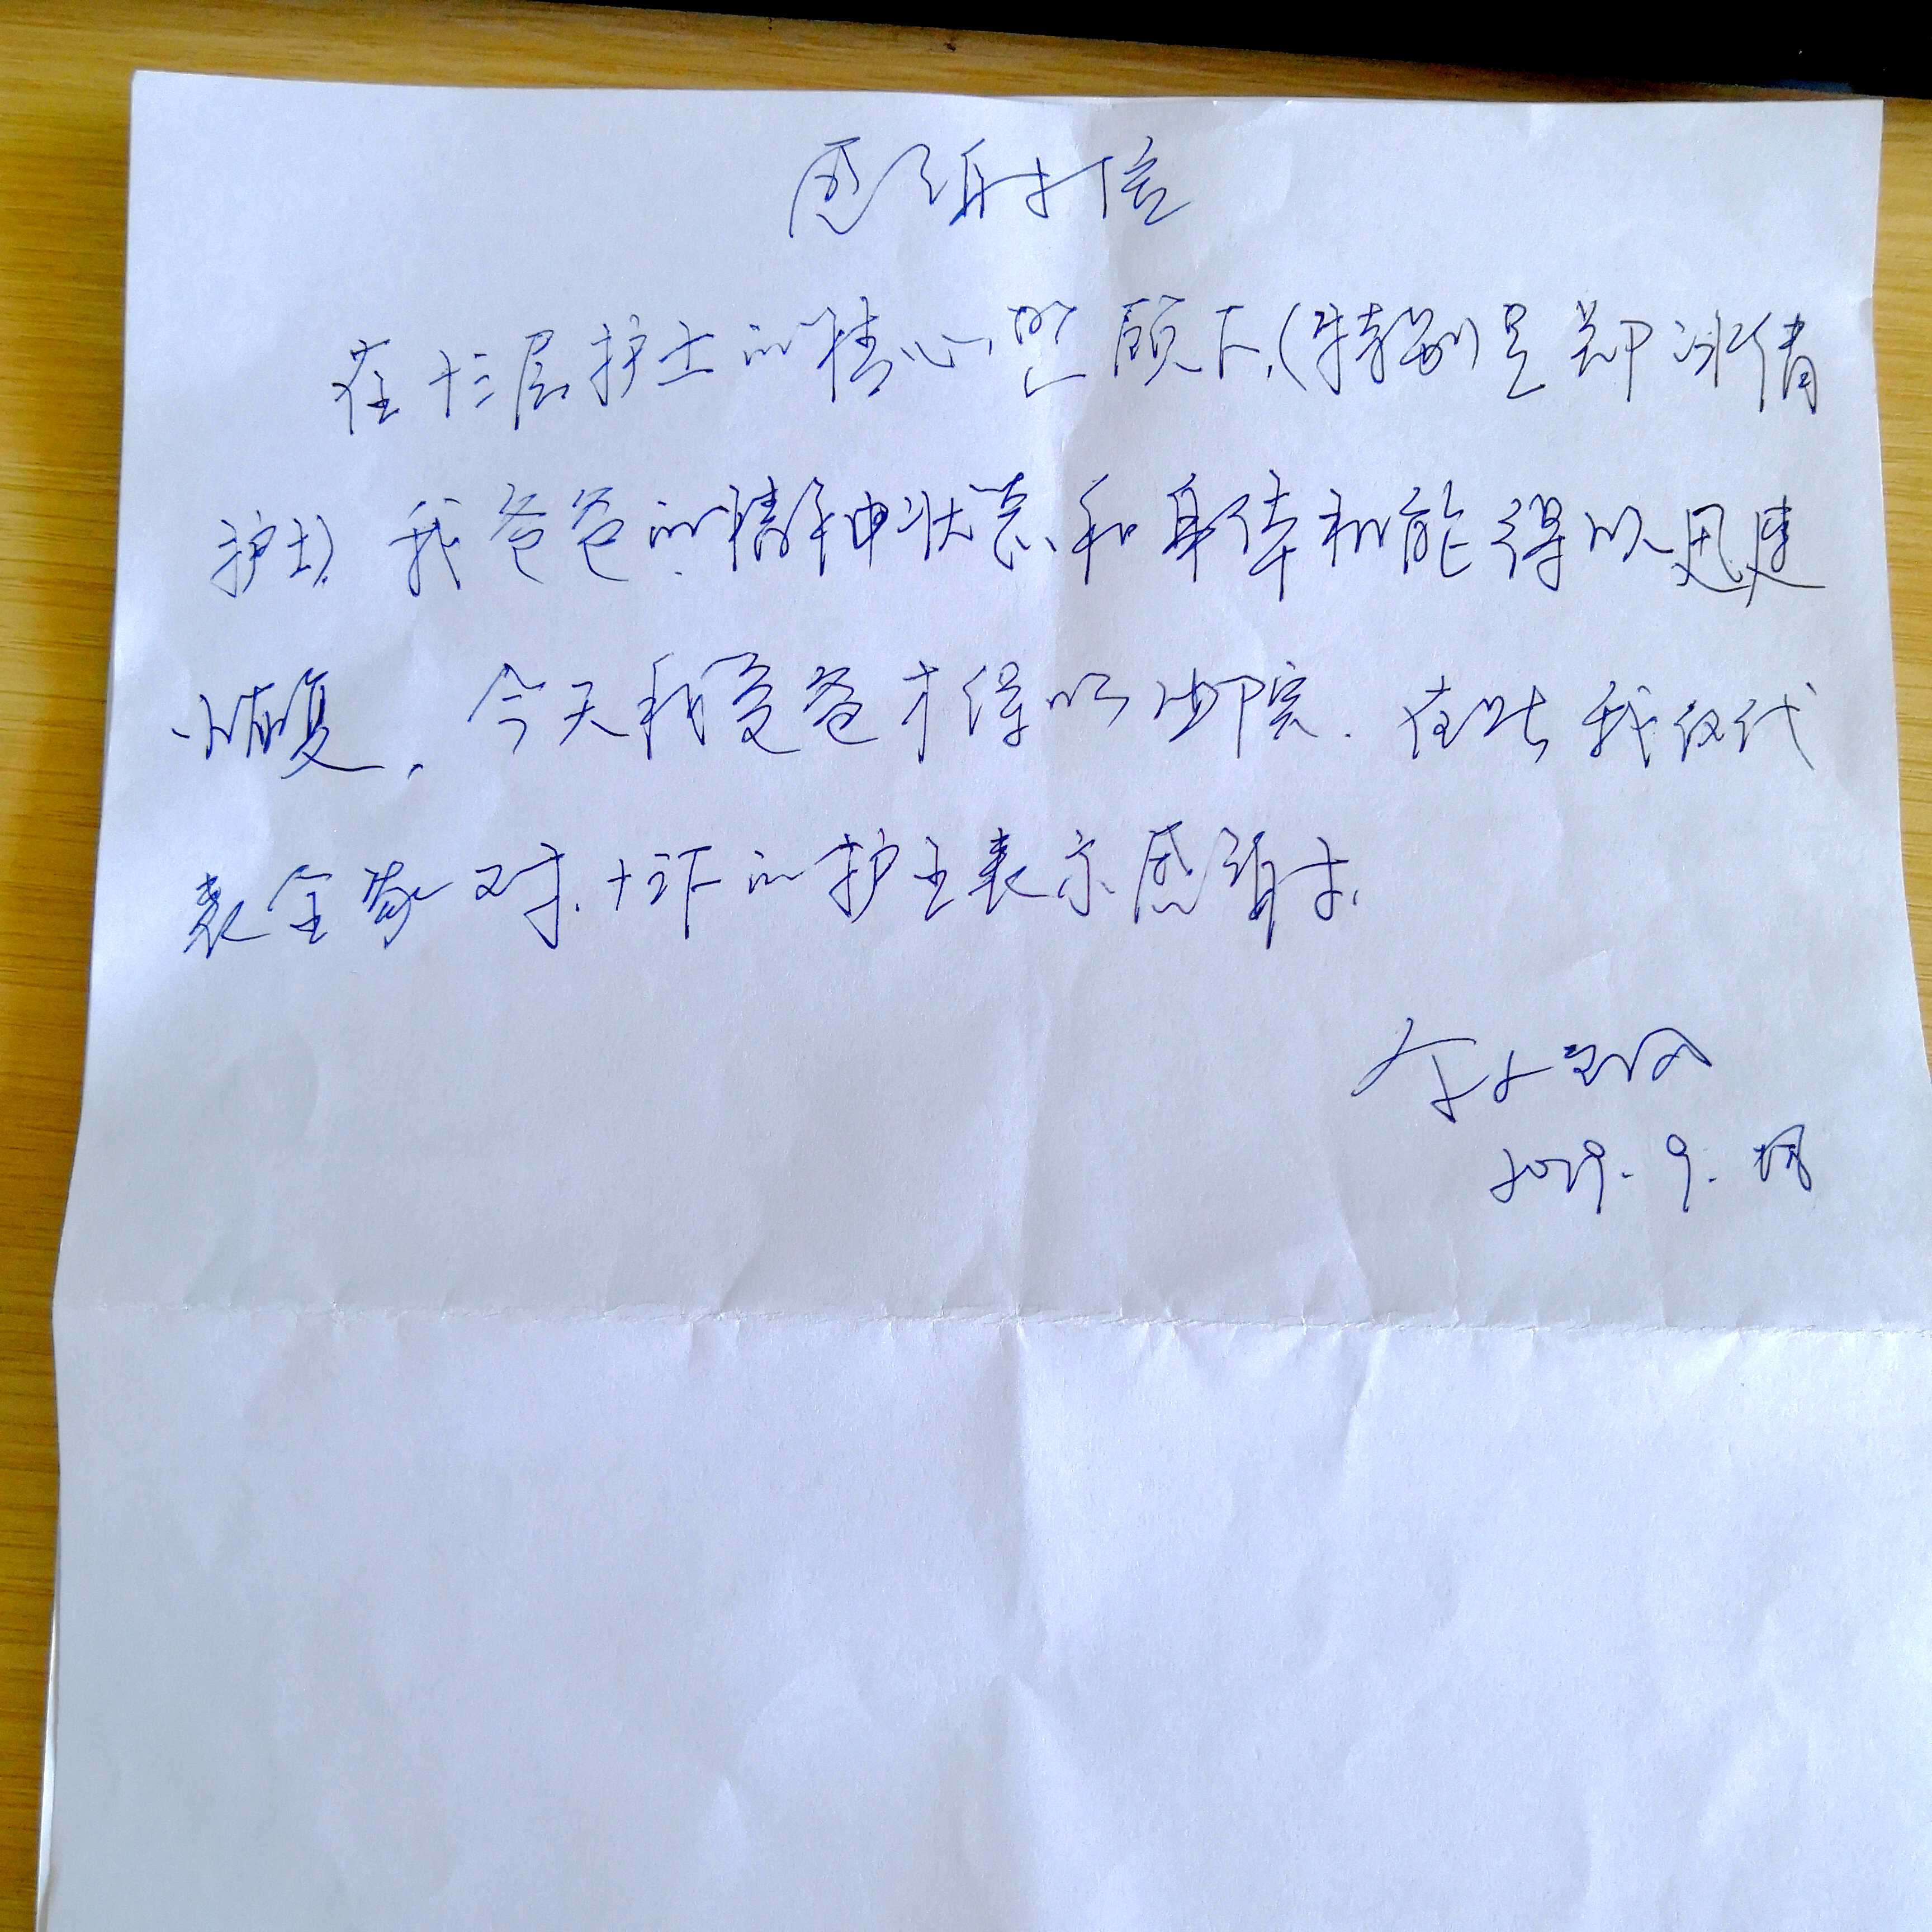 感谢信
在十三层护士的精心照顾下,(特别是郑冰倩
护士)我爸爸的精神状态和身体机能得以迅速
恢复,今天我爸爸才得以出院.在此我仅代
表全家对十三下的护士表示感谢.
2019.9.